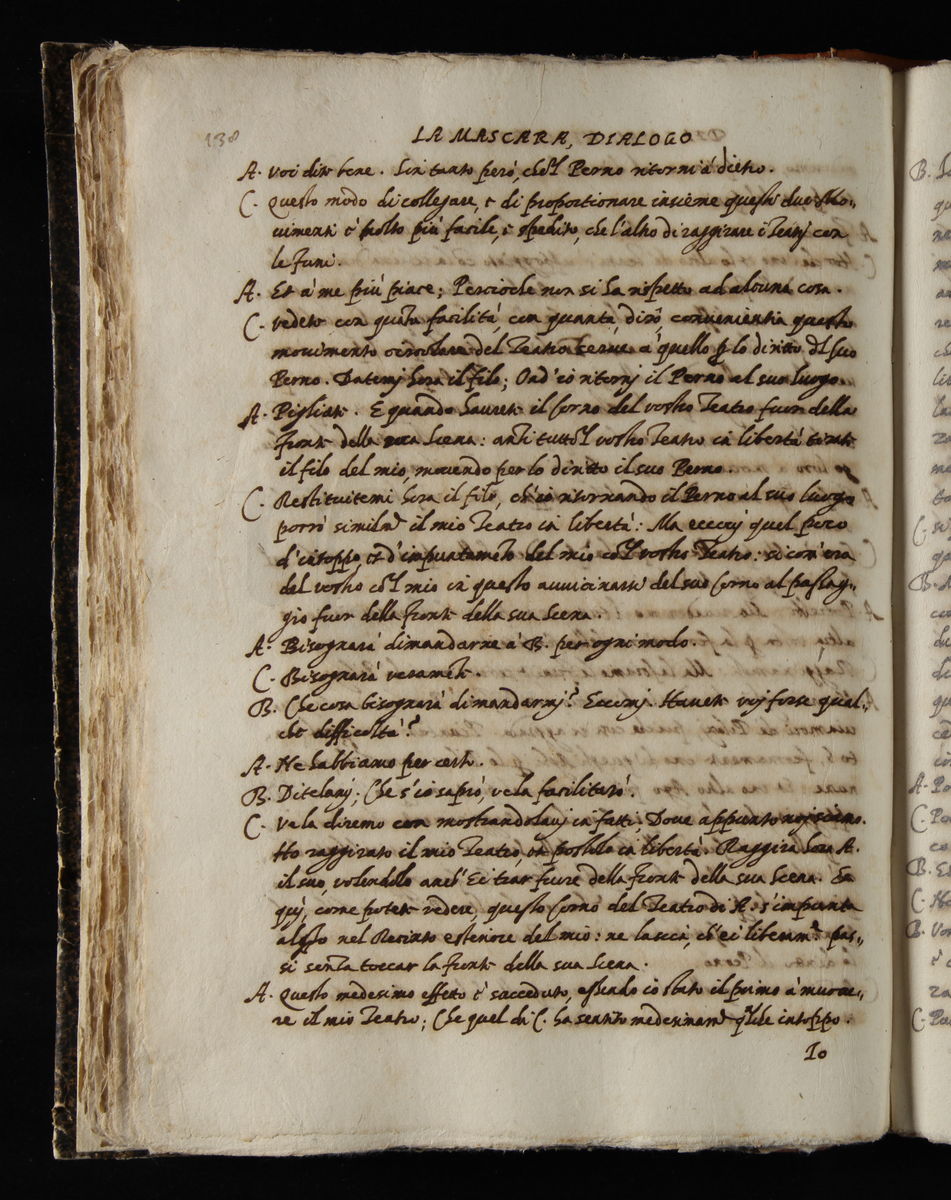 138
LA MASCARA, DIALOGO
A. Voi dite bene. Sin tanto però, che'l Perno ritorni à dietro.
C. Questo modo di collegare, e di proportionare insieme questi due Mo„
uimenti è molto più facile, e spedito, che l'altro di raggirare i Teatrj con
le funi.
A. Et à me più piace; Percioche non si ha rispetto ad alcuna cosa.
C. Vedete con quanta facilità, con quanta, dirò, conuenientia questo
mouimento circolare del Teatro serue a' quello p lo diritto del suo
Perno. Datemj hora il filo; Ond'io ritornj il Perno al suo luogo.
A. Pigliate. E quando haurete il Corno del vostro Teatro fuor della
fronte della Scena: anzi tutto'l vostro Teatro in libertà tirate
il filo del mio, mouendo per lo diritto il suo Perno.
C. Restituitemi hora il filo, ch'io ritornando il Perno al suo luogo
porrò similmte il mio Teatro in libertà: Ma eccouj quel poco
d'intoppo, et d'impuntamento del mio co'l vostro Teatro: si com'era
del vostro co'l mio in questo auuicinarsi del suo Corno al passag„
gio fuor della fronte della sua Scena.
A. Bisognarà dimandarne à B. per ogni modo.
C. Bisognarà veramente.
B. Che cosa bisognarà dimandarmj? Eccomj. Hauete voj forse qual„
che difficoltà?
A. Ne habbiamo per certo.
B. Ditelamj; Che s'io saprò, ve la facilitarò.
C. Ve la diremo con mostrandolauj in fatti; Doue appunto noj siamo.
Ho raggirato il mio Teatro, et postolo in libertà. Raggira hora A.
il suo, volendolo anch'Ei trar fuore della fronte della sua Scena. Et
quj, come potete vedere, questo Corno del Teatro di A. s'impunta
alqto nel Recinto esteriore del mio: ne lascia, ch'ei liberamte pas„
si senza toccar la fronte della sua Scena.
A. Questo medesimo effetto è succeduto, essendo io stato il primo à muoue„
re il mio Teatro; Che quel di C. ha sentito medesimamte qlche intoppo.
Io